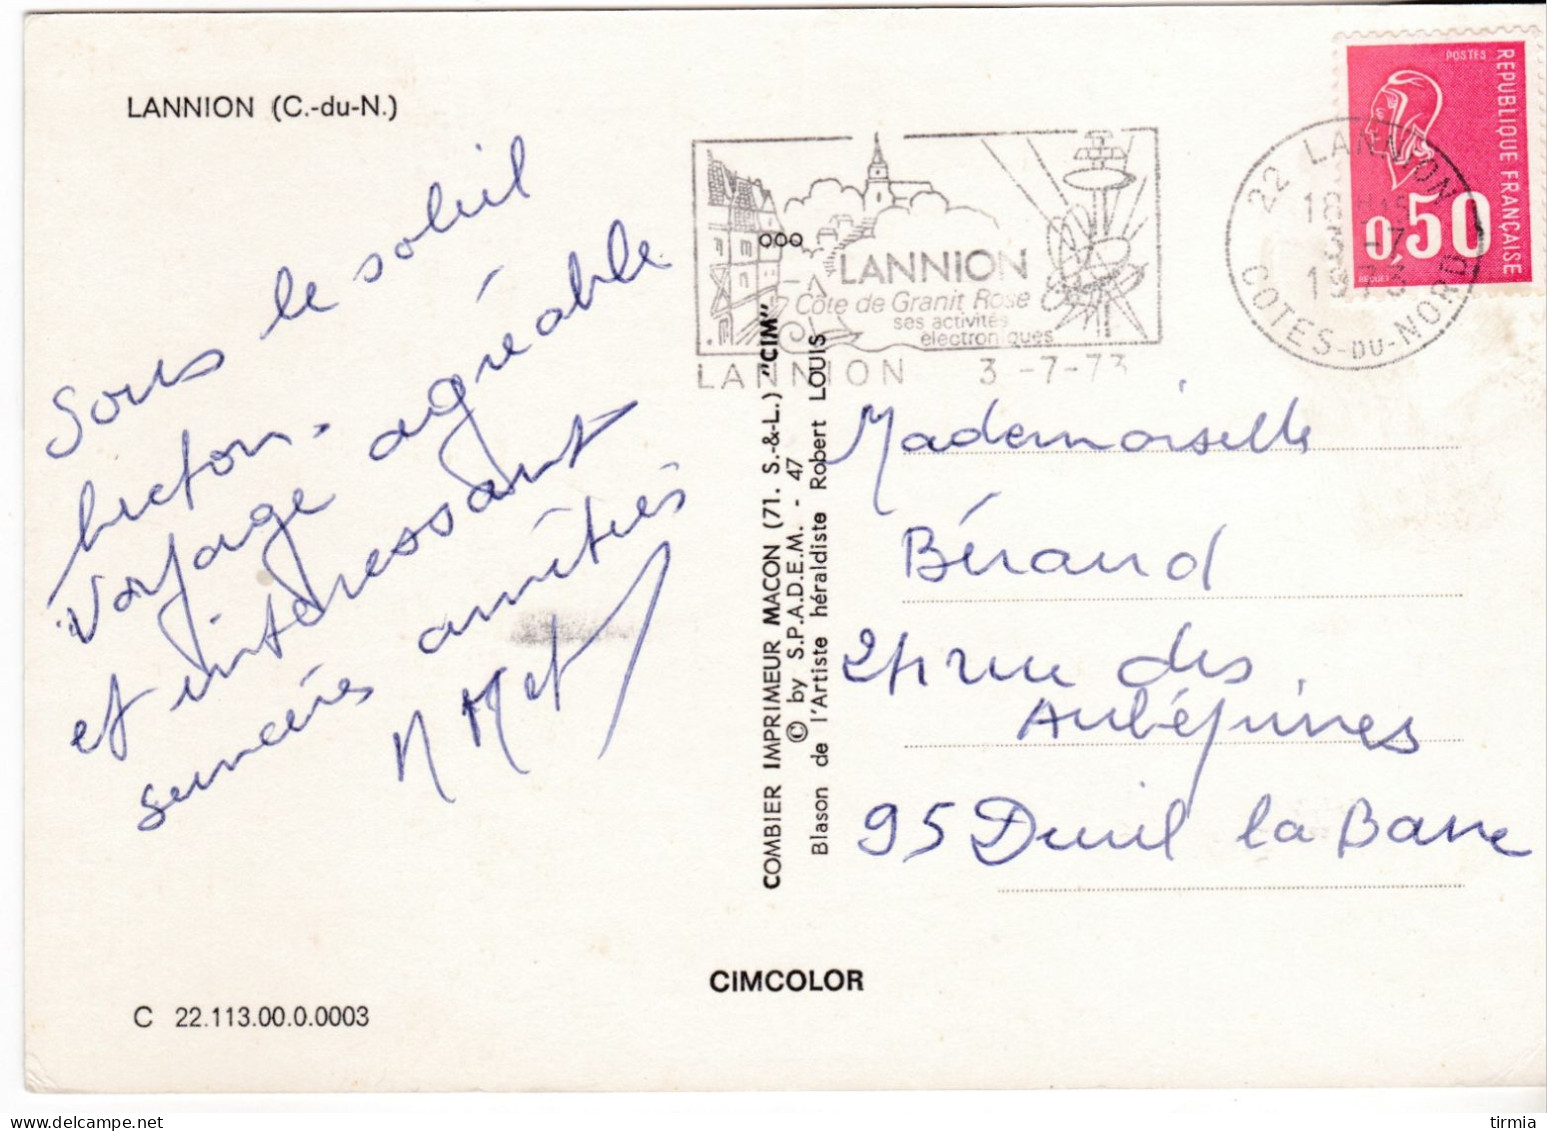 LANNION (C.-du-N.)
Sous le soleil
breton.
voyage agréable
et intéressant
sincères amitiés
COMBIER IMPRIMEUR MACON (71. S.-&-L.) "CIM"
© by S.P.A.D.E.M. - 47
Blason de l'Artiste héraldiste Robert LOUIS
LANNION
Côte de Granit Rose
ses activités
électroniques
LANNION 3-7-73
22 LANNION
18
3-7
1973
COTES-DU-NORD
POSTES
REPUBLIQUE FRANÇAISE
0,50
BEQUET
Mademoiselle
Béraud
rue des
Aubépines
95 Deuil la Barre
CIMCOLOR
C 22.113.00.0.0003
tirmia